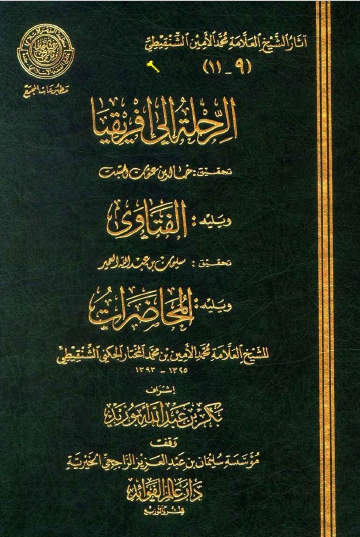 آثار الشيخ العلامة محمد الأمين الشنقيطي
(٩ - ١١)
مطبوعات المجمع
الرحلة إلى افريقيا
تحقيق: خالد بن عثمان السبت
ويليه: الفتاوى
تحقيق: سليمان بن عبد الله العمير
ويليه: المحاضرات
للشيخ العلامة محمد الأمين بن محمد المختار الجكني الشنقيطي
١٣٢٥ - ١٣٩٣
إشراف
بكر بن عبد الله أبو زيد
وقف
مؤسسة سليمان بن عبد العزيز الراجحي الخيرية
دار عالم الفوائد
للنشر والتوزيع